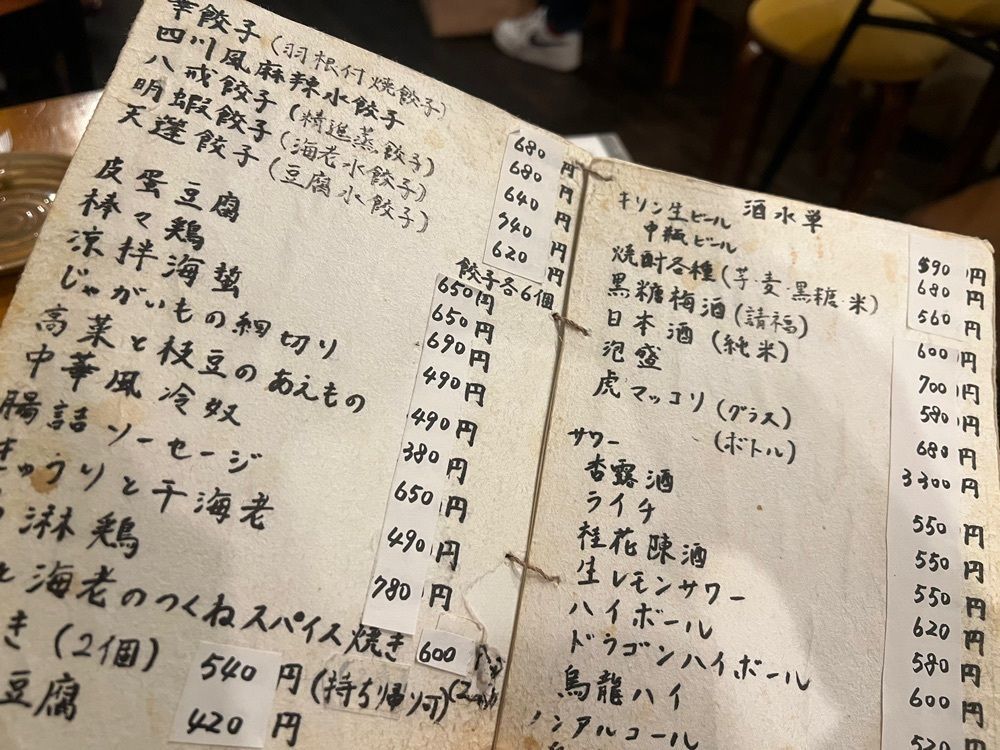 餃子(羽根付焼餃子) 680円
四川風麻辣水餃子 680円
八戒餃子(精進蒸餃子) 640円
明蝦餃子(海老水餃子) 940円
天蓬餃子(豆腐水餃子) 620円
餃子各6個
皮蛋豆腐 650円
棒々鶏 650円
涼拌海蜇 690円
じゃがいもの細切り 490円
高菜と枝豆のあえもの 490円
中華風冷奴 380円
腸詰ソーセージ 650円
きゅうりと干海老 490円
淋鶏 780円
と海老のつくねスパイス焼き 600
き(2個) 540円(持ち帰り可)
豆腐 420円
酒水単
キリン生ビール 590円
中瓶ビール 680円
焼酎各種(芋・麦・黒糖・米) 560円
黒糖梅酒(請福) 600円
日本酒(純米) 700円
泡盛 580円
虎マッコリ(グラス) 680円
(ボトル) 3300円
サワー
杏露酒 550円
ライチ 550円
桂花陳酒 550円
生レモンサワー 620円
ハイボール 580円
ドラゴンハイボール 600円
烏龍ハイ 520
ノンアルコール